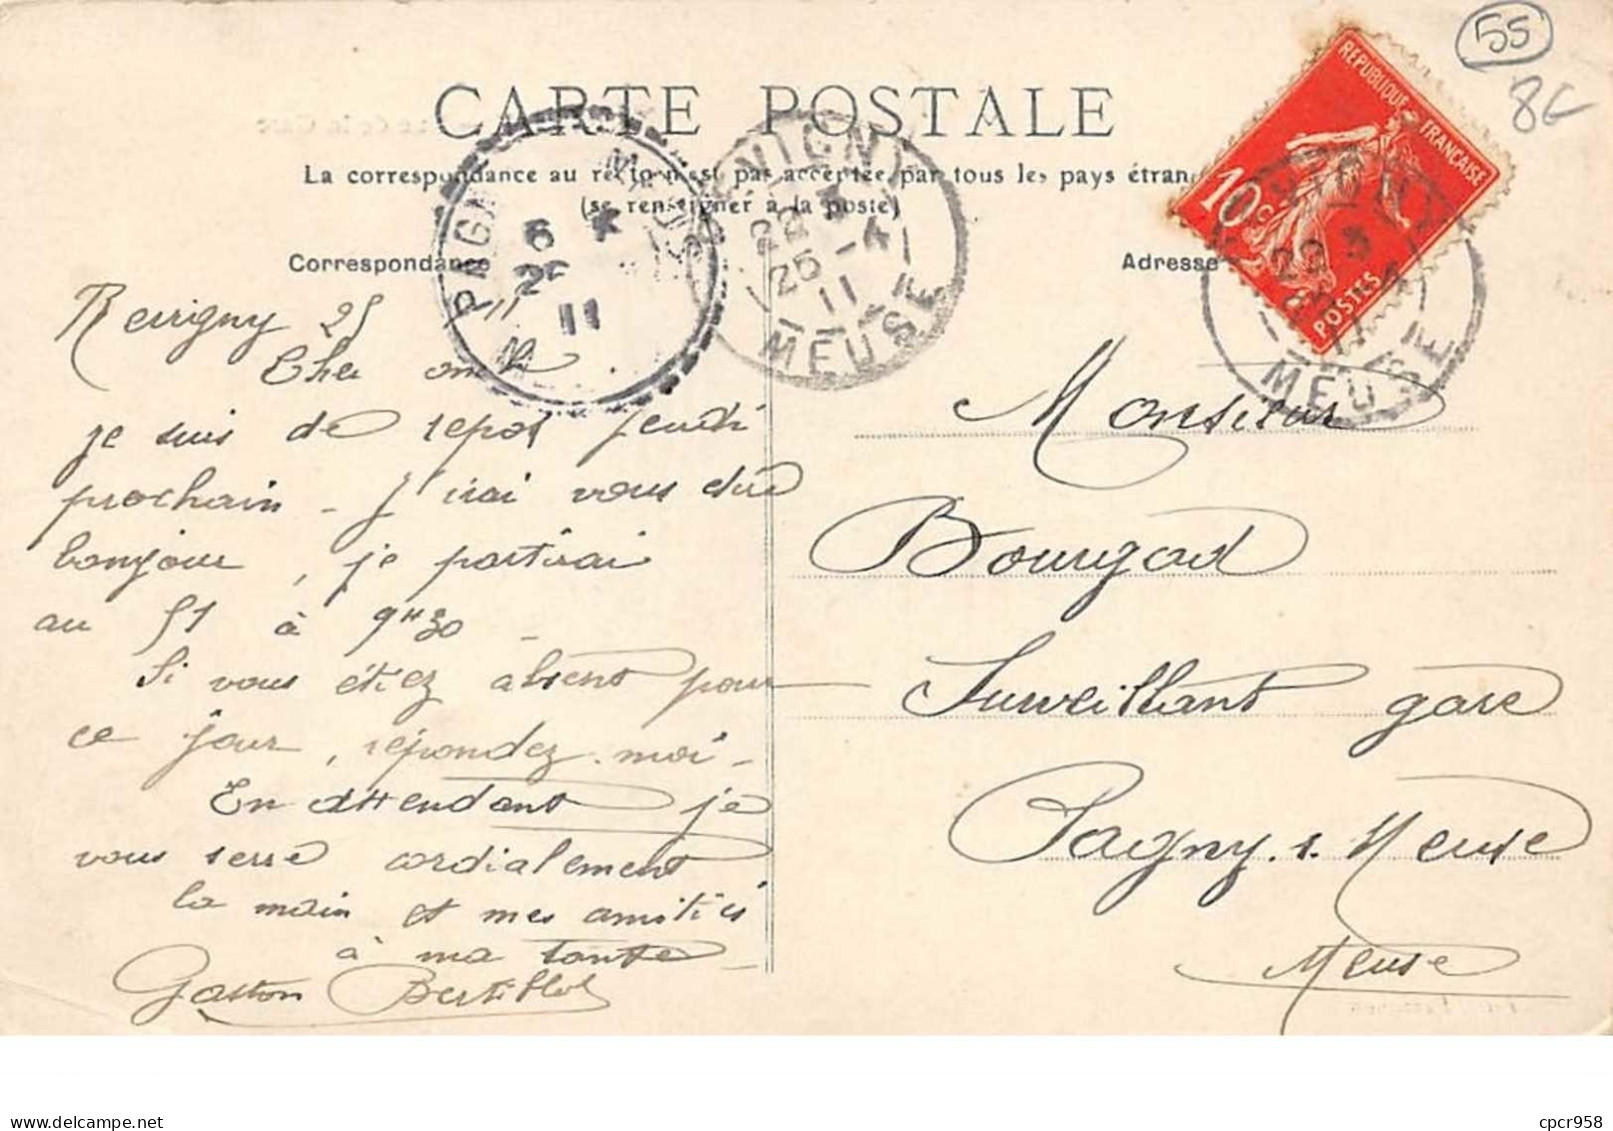 55
8€
CARTE POSTALE
La correspondance au recto n'est pas acceptée par tous les pays étran
(se renseigner à la poste)
Correspondance
Adresse
RÉPUBLIQUE FRANÇAISE
10c
POSTES
PAGNY
MEUSE
6
26
11
REVIGNY
22
25 -4
11
MEUSE
REVIGNY
22
25 -4
11
MEUSE
Revigny 25 4 11
Cher oncle
je suis de repos jeudi
prochain - J'irai vous dire
bonjour, je partirai
au 51 à 9H30 -
Si vous étiez absent pour
ce jour, répondez-moi -
En attendant je
vous serre cordialement
la main et mes amitiés
à ma tante -
Gaston Bertillot
Monsieur
Bourgad
Surveillant gare
Pagny. s. Meuse
Meuse
cpcr958